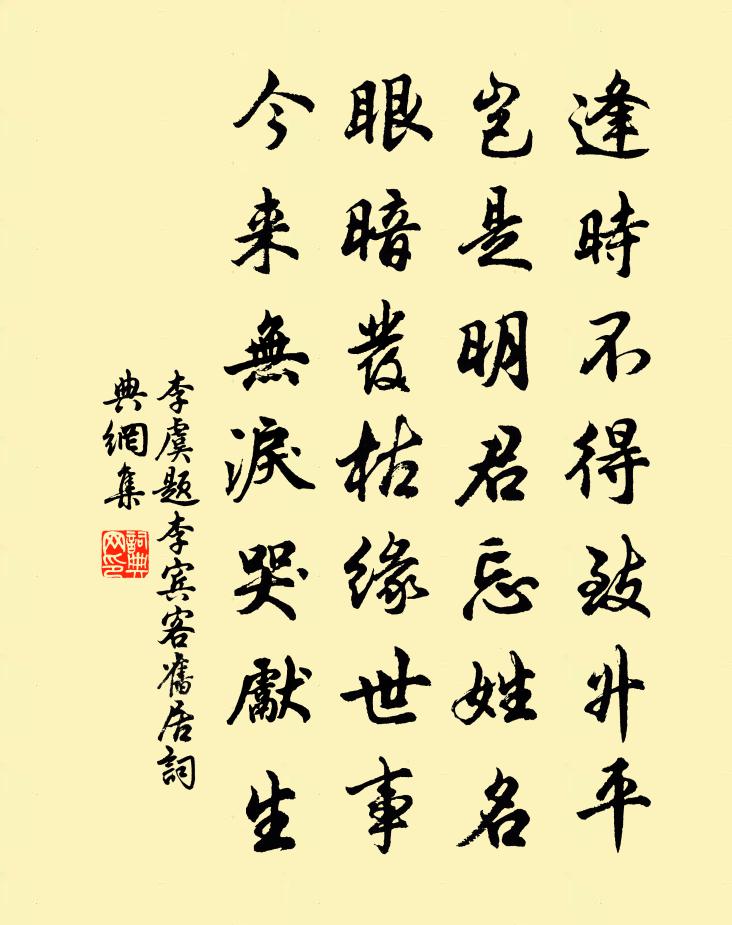 逢時不得致升平
豈是明君忘姓名
眼暗發枯緣世事
今来無淚哭獻生
李虞题李宾客舊居詞
典網集
詞典网印